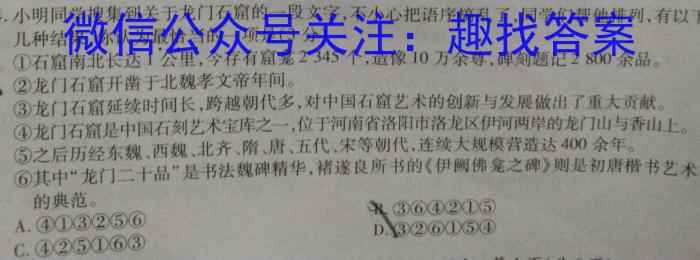 小明同学搜集到关于龙门石窟的一段文字,不小心把语序
微信公众号关注：趣找答案
①石窟南北长达1公里,今存有窟龛2345个,造像10万余尊,碑刻题记2800余品。
②龙门石窟开凿于北魏孝文帝年间。
③龙门石窟延续时间长,跨越朝代多,对中国石窟艺术的创新与发展做出了重大贡献。
④龙门石窟是中国石刻艺术宝库之一,位于河南省洛阳市洛龙区伊河两岸的龙门山与香山上。
⑤之后历经东魏、西魏、北齐、隋、唐、五代、宋等朝代,连续大规模营造达400余年。
⑥其中“龙门二十品”是书法魏碑精华,褚遂良所书的《伊阙佛龛之碑》则是初唐楷书艺术
的典范。
A. ④①③②⑤⑥
B. ③⑥④②①⑤
C. ④②⑤①⑥③
D. ③②⑥①⑤④